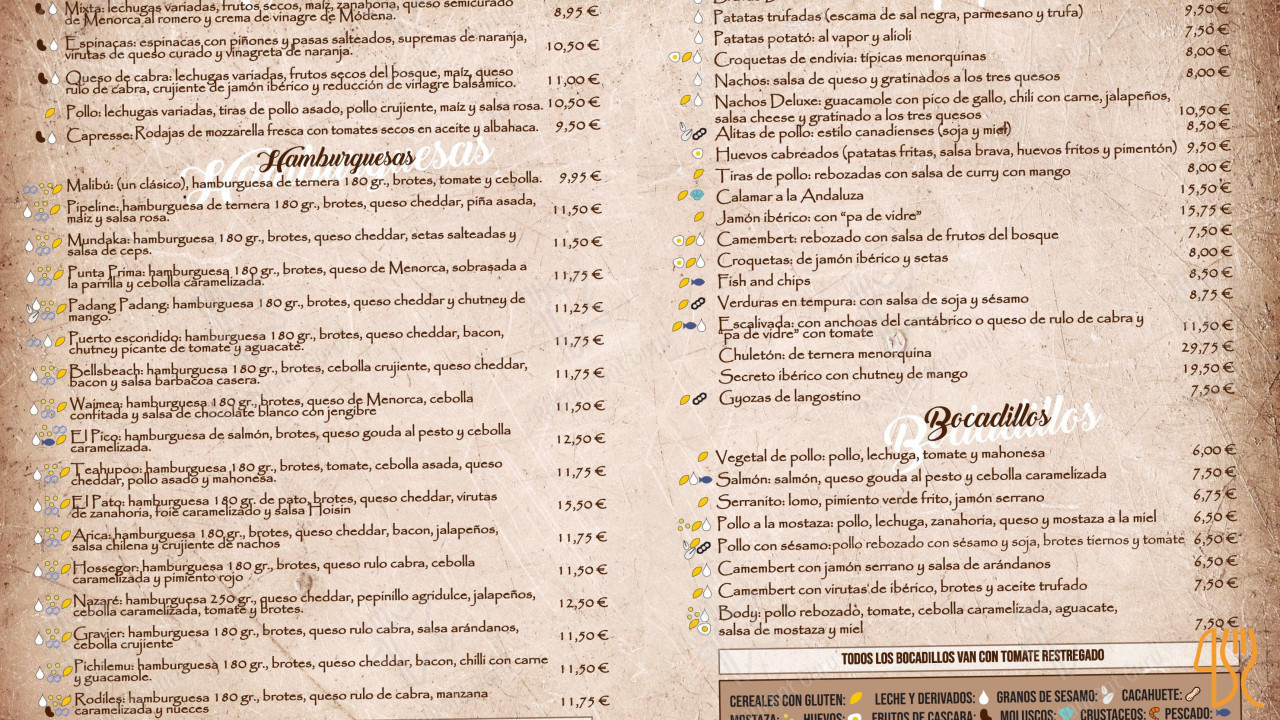 Mixta: lechugas variadas, frutos secos, maíz, zanahoria, queso semicurado
de Menorca al romero y crema de vinagre de Módena. 8,95 €
Espinacas: espinacas con piñones y pasas salteados, supremas de naranja,
virutas de queso curado y vinagreta de naranja. 10,50 €
Queso de cabra: lechugas variadas, frutos secos del bosque, maíz, queso
rulo de cabra, crujiente de jamón ibérico y reducción de vinagre balsámico. 11,00 €
Pollo: lechugas variadas, tiras de pollo asado, pollo crujiente, maíz y salsa rosa. 10,50 €
Capresse: Rodajas de mozzarella fresca con tomates secos en aceite y albahaca. 9,50 €
Hamburguesas
Malibú: (un clásico), hamburguesa de ternera 180 gr., brotes, tomate y cebolla. 9,95 €
Pipeline: hamburguesa de ternera 180 gr., brotes, queso cheddar, piña asada,
maíz y salsa rosa. 11,50 €
Mundaka: hamburguesa 180 gr., brotes, queso cheddar, setas salteadas y
salsa de ceps. 11,50 €
Punta Prima: hamburguesa 180 gr., brotes, queso de Menorca, sobrasada a
la parrilla y cebolla caramelizada. 11,75 €
Padang Padang: hamburguesa 180 gr., brotes, queso cheddar y chutney de
mango. 11,25 €
Puerto escondido: hamburguesa 180 gr., brotes, queso cheddar, bacon,
chutney picante de tomate y aguacate. 11,75 €
Bellsbeach: hamburguesa 180 gr., brotes, cebolla crujiente, queso cheddar,
bacon y salsa barbacoa casera. 11,75 €
Waimea: hamburguesa 180 gr., brotes, queso de Menorca, cebolla
confitada y salsa de chocolate blanco con jengibre 11,50 €
El Pico: hamburguesa de salmón, brotes, queso gouda al pesto y cebolla
caramelizada. 12,50 €
Teahupoo: hamburguesa 180 gr., brotes, tomate, cebolla asada, queso
cheddar, pollo asado y mahonesa. 11,75 €
El Pato: hamburguesa 180 gr. de pato, brotes, queso cheddar, virutas
de zanahoria, foie caramelizado y salsa Hoisin 15,50 €
Arica: hamburguesa 180 gr., brotes, queso cheddar, bacon, jalapeños,
salsa chilena y crujiente de nachos 11,75 €
Hossegor: hamburguesa 180 gr., brotes, queso rulo cabra, cebolla
caramelizada y pimiento rojo 11,50 €
Nazaré: hamburguesa 250 gr., queso cheddar, pepinillo agridulce, jalapeños,
cebolla caramelizada, tomate y brotes. 12,50 €
Gravier: hamburguesa 180 gr., brotes, queso rulo cabra, salsa arándanos,
cebolla crujiente 11,50 €
Pichilemu: hamburguesa 180 gr., brotes, queso cheddar, bacon, chilli con carne
y guacamole. 11,50 €
Rodiles: hamburguesa 180 gr., brotes, queso rulo de cabra, manzana
caramelizada y nueces 11,75 €
Patatas trufadas (escama de sal negra, parmesano y trufa) 9,50 €
Patatas potató: al vapor y alioli 7,50 €
Croquetas de endivia: típicas menorquinas 8,00 €
Nachos: salsa de queso y gratinados a los tres quesos 8,00 €
Nachos Deluxe: guacamole con pico de gallo, chili con carne, jalapeños,
salsa cheese y gratinado a los tres quesos 10,50 €
Alitas de pollo: estilo canadienses (soja y miel) 8,50 €
Huevos cabreados (patatas fritas, salsa brava, huevos fritos y pimentón) 9,50 €
Tiras de pollo: rebozadas con salsa de curry con mango 8,00 €
Calamar a la Andaluza 15,50 €
Jamón ibérico: con “pa de vidre” 15,75 €
Camembert: rebozado con salsa de frutos del bosque 7,50 €
Croquetas: de jamón ibérico y setas 8,00 €
Fish and chips 8,50 €
Verduras en tempura: con salsa de soja y sésamo 8,75 €
Escalivada: con anchoas del cantábrico o queso de rulo de cabra y
“pa de vidre” con tomate 11,50 €
Chuletón: de ternera menorquina 29,75 €
Secreto ibérico con chutney de mango 19,50 €
Gyozas de langostino 7,50 €
Bocadillos
Vegetal de pollo: pollo, lechuga, tomate y mahonesa 6,00 €
Salmón: salmón, queso gouda al pesto y cebolla caramelizada 7,50 €
Serranito: lomo, pimiento verde frito, jamón serrano 6,75 €
Pollo a la mostaza: pollo, lechuga, zanahoria, queso y mostaza a la miel 6,50 €
Pollo con sésamo: pollo rebozado con sésamo y soja, brotes tiernos y tomate 6,50 €
Camembert con jamón serrano y salsa de arándanos 6,50 €
Camembert con virutas de ibérico, brotes y aceite trufado 7,50 €
Body: pollo rebozado, tomate, cebolla caramelizada, aguacate,
salsa de mostaza y miel 7,50 €
TODOS LOS BOCADILLOS VAN CON TOMATE RESTREGADO
CEREALES CON GLUTEN: LECHE Y DERIVADOS: GRANOS DE SESAMO: CACAHUETE:
MOSTAZA: HUEVOS: FRUTOS DE CASCARA: MOLUSCOS: CRUSTACEOS: PESCADO: